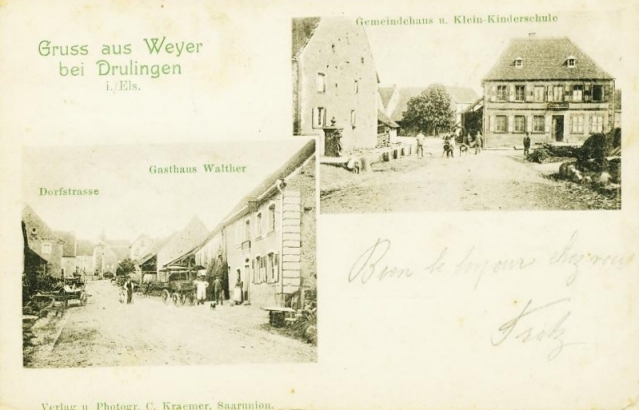 Gruss aus Weyer
bei Drulingen
i./Els.
Gemeindehaus u. Klein-Kinderschule
Gasthaus Walther
Dorfstrasse
Fritz
Verlag u. Photogr. C. Kraemer, Saarunion.